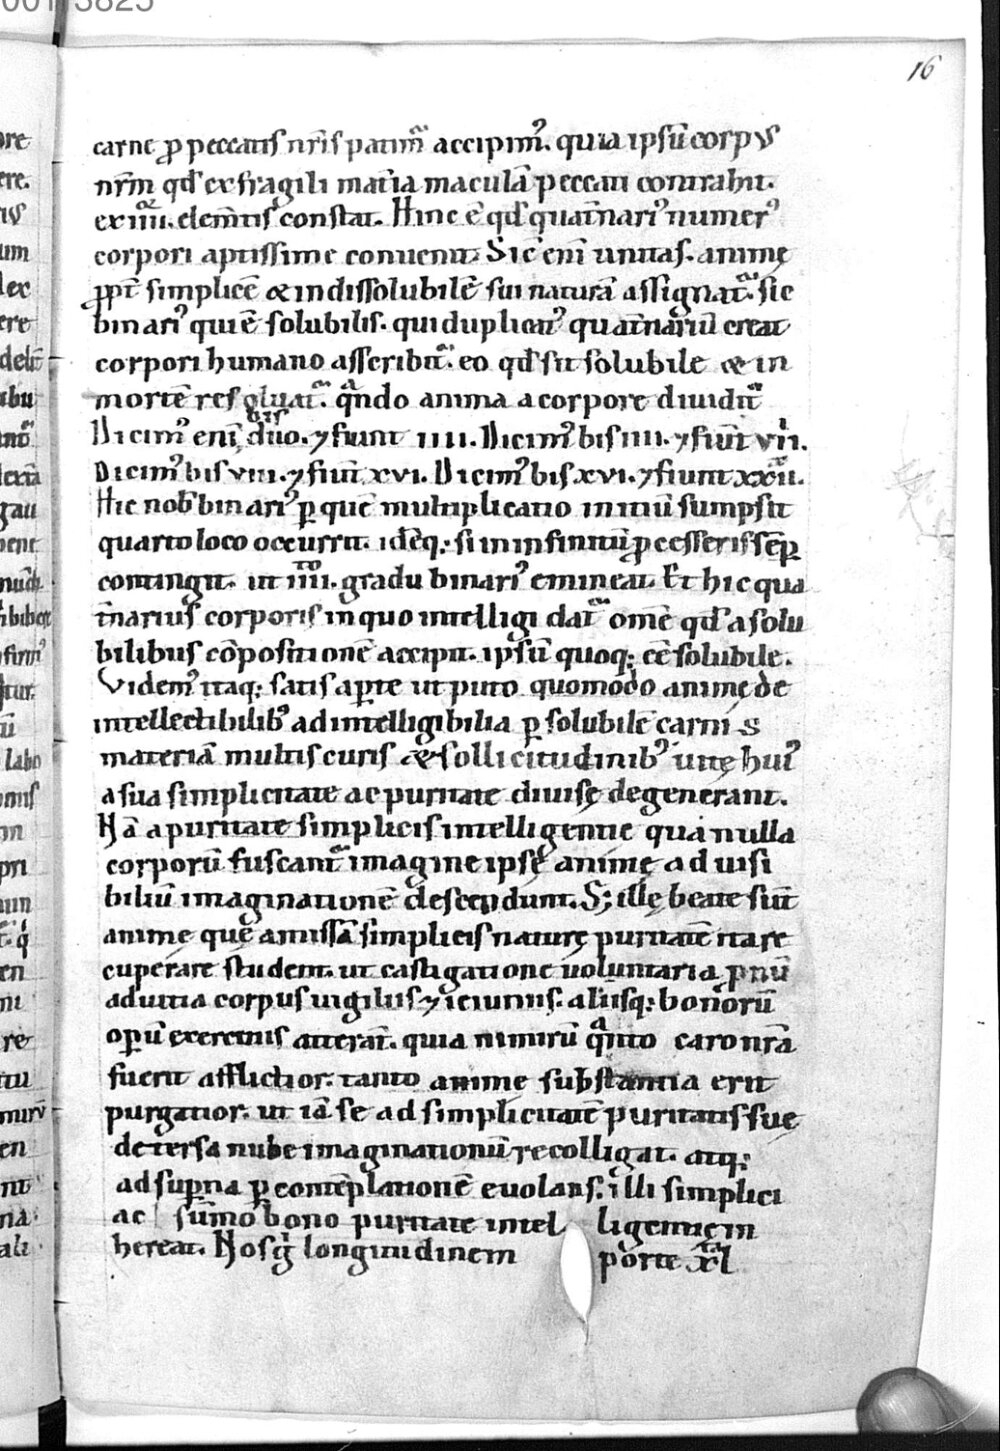 16
carne ꝓ peccatis nr̄is patim̄ accipim᷒. quia ipsū corpus
nr̄m qd̄ ex fragili mat̄ia maculā peccati contrahit.
ex iiii. elem̄tis constat. Hinc ē qd̄ quat̄nari᷒ numer᷒
corpori aptissime conuenit. Sic eni unitas. animę
ꝓpt̄ simplicē & indissolubilē sui naturā assignat̄. sic
binari᷒ qui ē solubilis. qui duplicat᷒ quat̄nariū creat
corpori humano asscribit̄. eo qd̄ sit solubile & in
mortē resoluat̄. qͣndo anima a corpore diuidit̄
Dicim᷒ eni bis duo. ⁊ fiunt iiii. Dicim᷒ bis iiii. ⁊ fiūt viii.
Dicim᷒ bis viii. ⁊ fiūt xvi. Dicim᷒ bis xvi. ⁊ fiunt xxxii.
Hic nob̄ binari᷒ ꝑ quē multiplicatio initiū sumpsit
quarto loco occurrit. idēq; si in infinitū ꝓcesseris sēꝑ
contingit. ut iiii. gradu binari᷒ emineat. Et hic qua
t̄narius corporis in quo intelligi dat̄ omē qd̄ a solu
bilibus cōpositionē accipit. ipsū quoq; ēē solubile.
Videm᷒ itaq; satis aꝑte ut puto quomodo animę de
intellectibilib᷒ ad intelligibilia ꝑ solubilē carnis
materiā multis curis & sollicitudinib᷒ uitę hui᷒
a sua simplicitate ac puritate diuisę degenerant.
Nā a puritate simplicis intelligentie qua nulla
corporū fuscant̄ imagine ipsę animę ad uisi
biliū imaginationē descendunt. S; illę beate sūt
anime quę amissā simplicis naturę puritatē ita re
cuperare student. ut castigatione uoluntaria ꝓnū
ad uitia corpus uigiliis ⁊ ieiuniis. aliisq; bonorū
oꝑū exercitiis atterāt. quia nimirū qͣnto caro nr̄a
fuerit afflictior. tanto anime substantia erit
purgatior. ut iā se ad simplicitatē puritatis suę
detersa nube imaginationū recolligat. atq;
ad suꝑna ꝑ contēplationē euolans. illi simplici
ac sūmo bono puritate intel ligentię in
hereat. Nosq̄ longitudinem porte xl